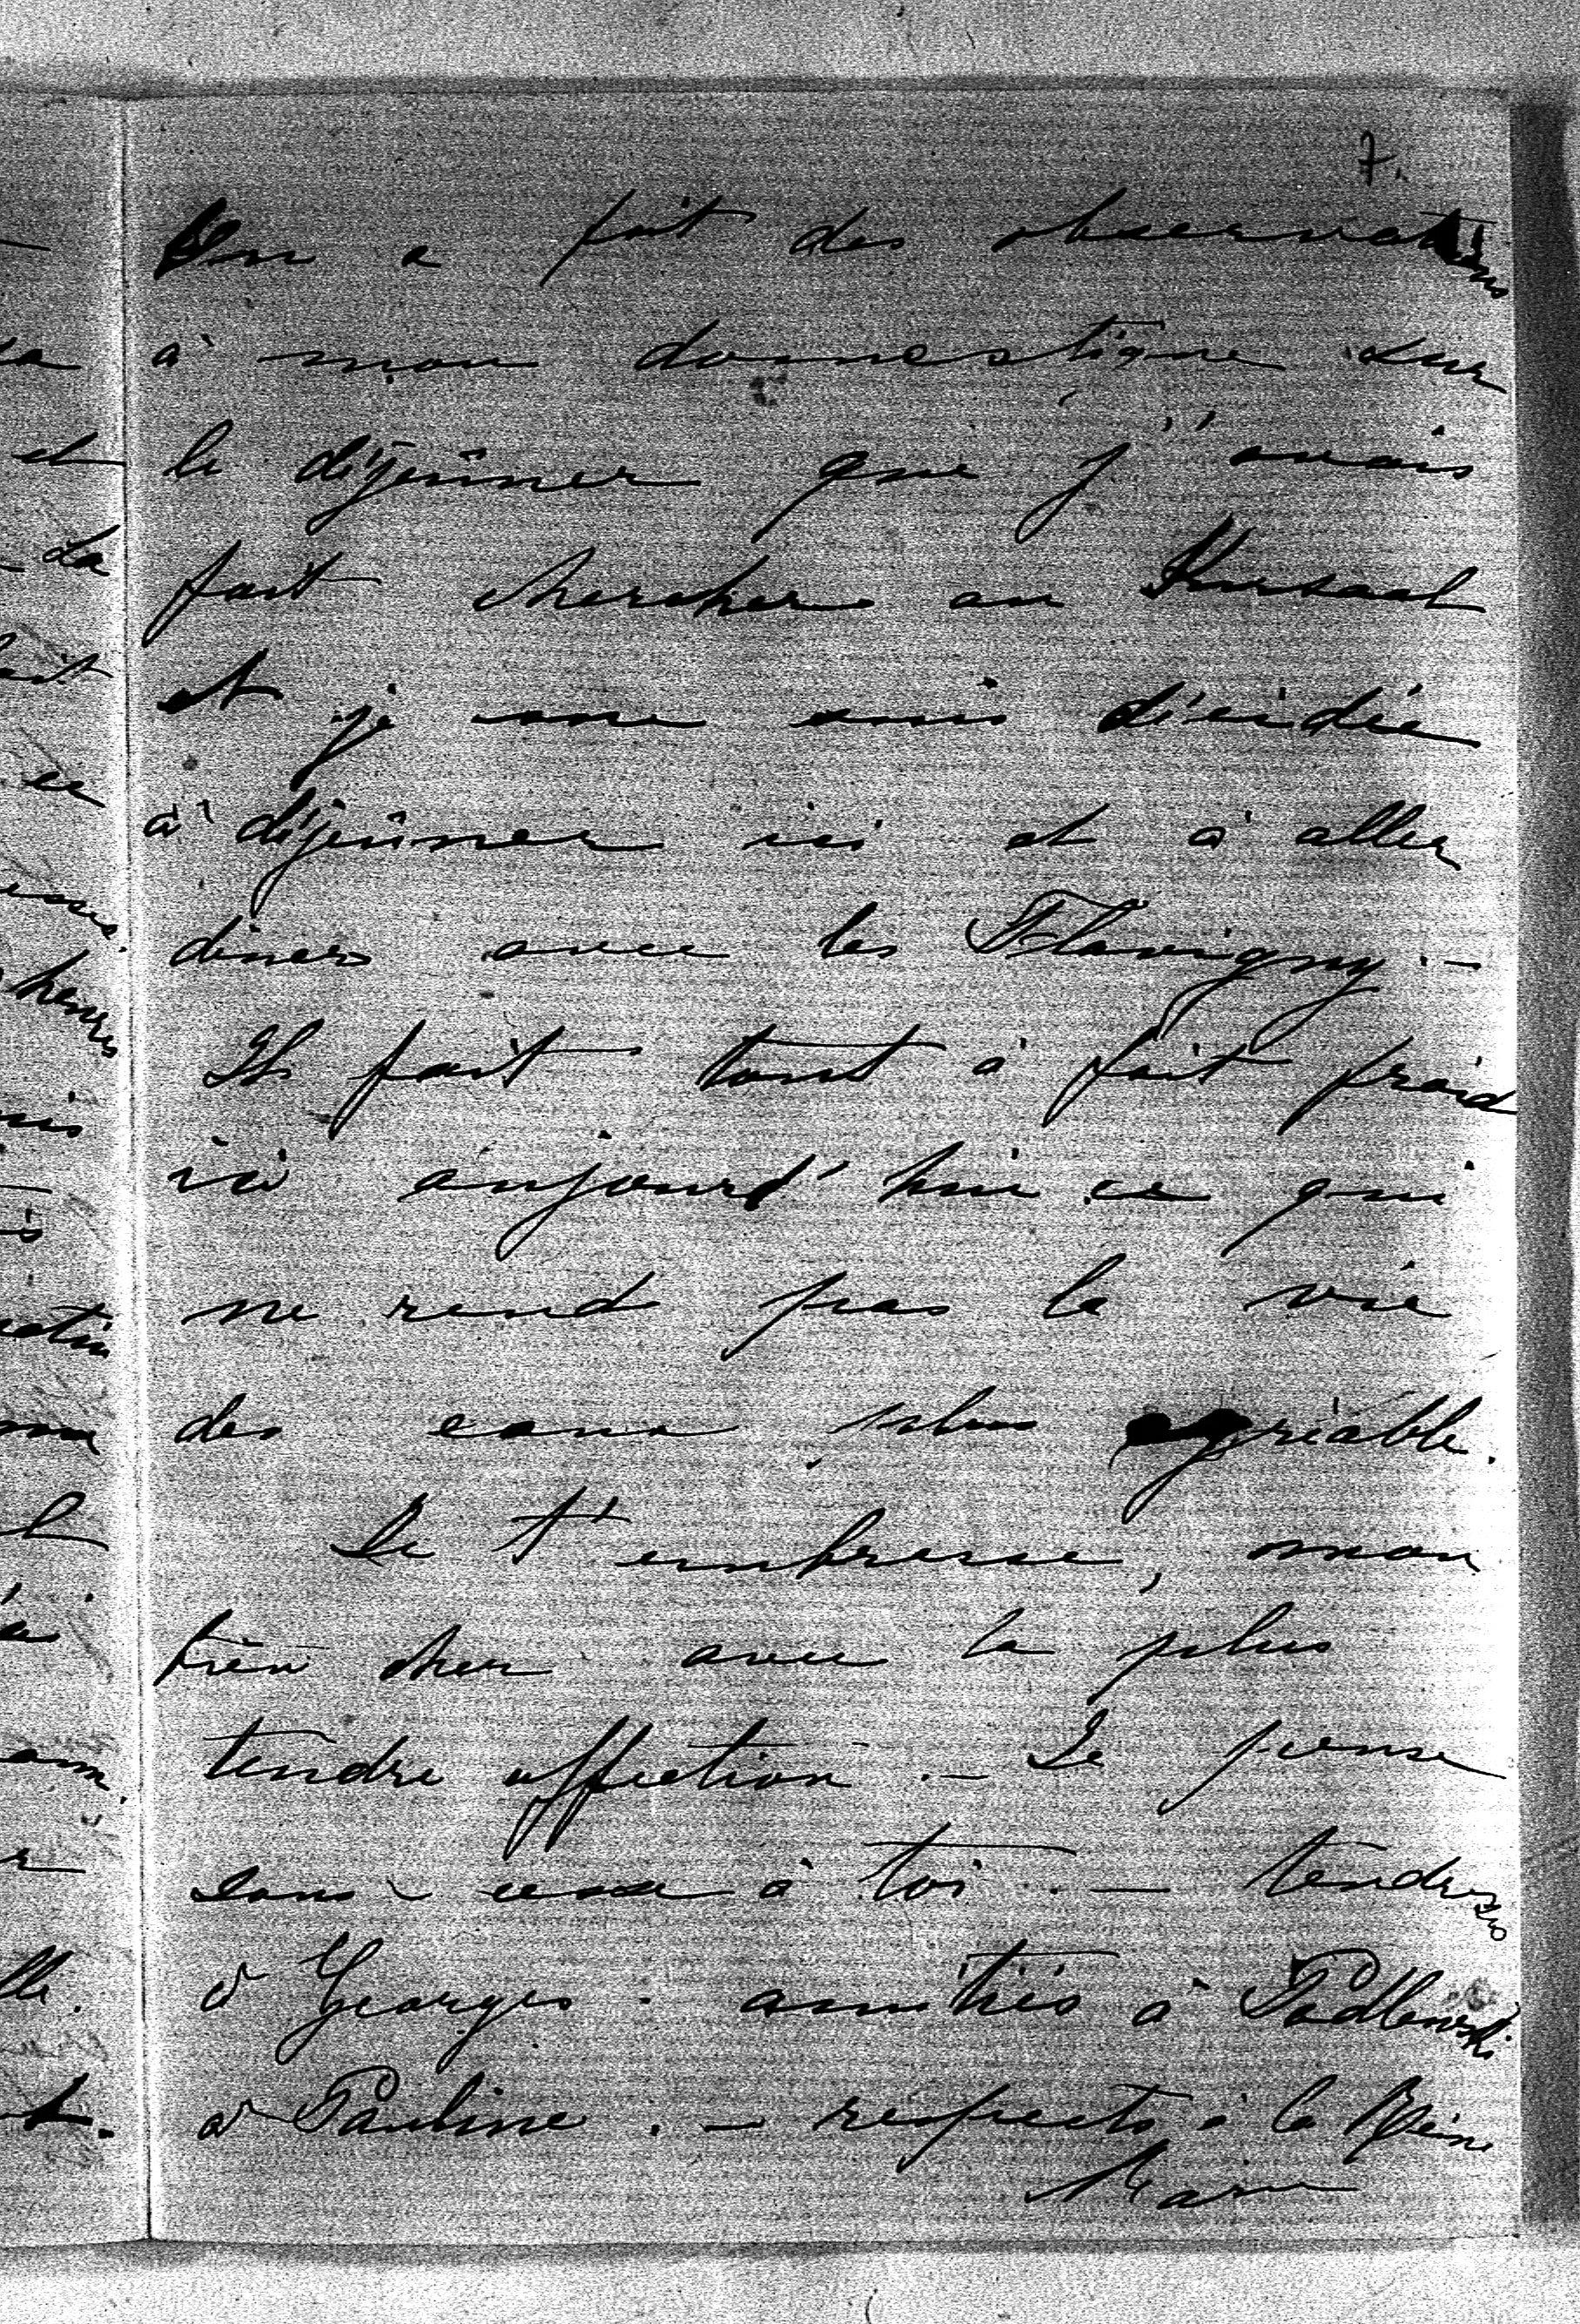 7.
On a fait des observations
à mon domestique sur
le déjeûner que j'avais
fait chercher au Kursaal
et je me suis décidée
à déjeûner ici et à aller
diner avec les Flavigny. —
Il fait tout à fait froid
ici aujourd'hui ce qui
ne rend pas la vie
des eaux plus agréable.
Je t'embrasse, mon
bien cher avec la plus
tendre affection. — Je pense
sans cesse à toi. — tendresses
à Georges. amitiés à Podlewski
à Pauline. — respects à la Reine
Marie